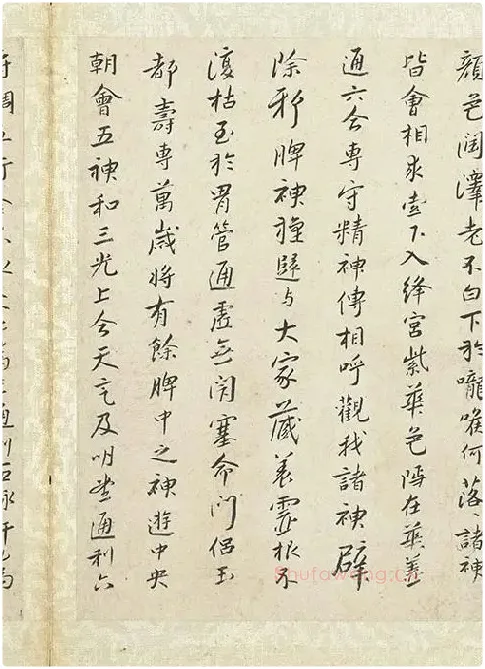 顏色潤澤老不白下於嚨喉何落諸神
皆會相求索下入絳宮紫華色隱在華蓋
通六合專守精神傳相呼觀我諸神辟
除邪脾神還歸与大家藏養靈根不
復枯至於胃管通虛無閉塞命門侶玉
都壽專萬歲將有餘脾中之神遊中央
朝會五神和三光上合天氣及明堂通利六